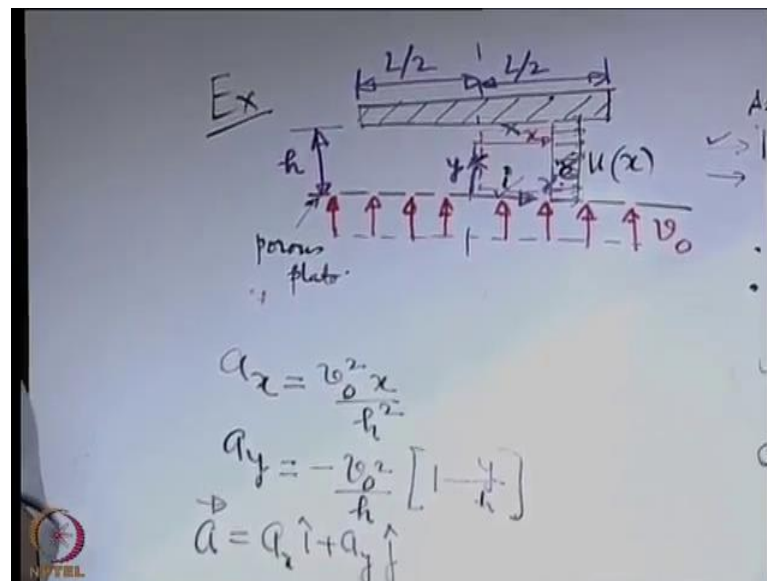 Ex
L/2 L/2
h
x
y
u(x)
porous
plate.
v₀
aₓ = v₀² x / h²
a_y = - v₀² / h [1 - y/h]
a⃗ = aₓ î + a_y ĵ
NPTEL